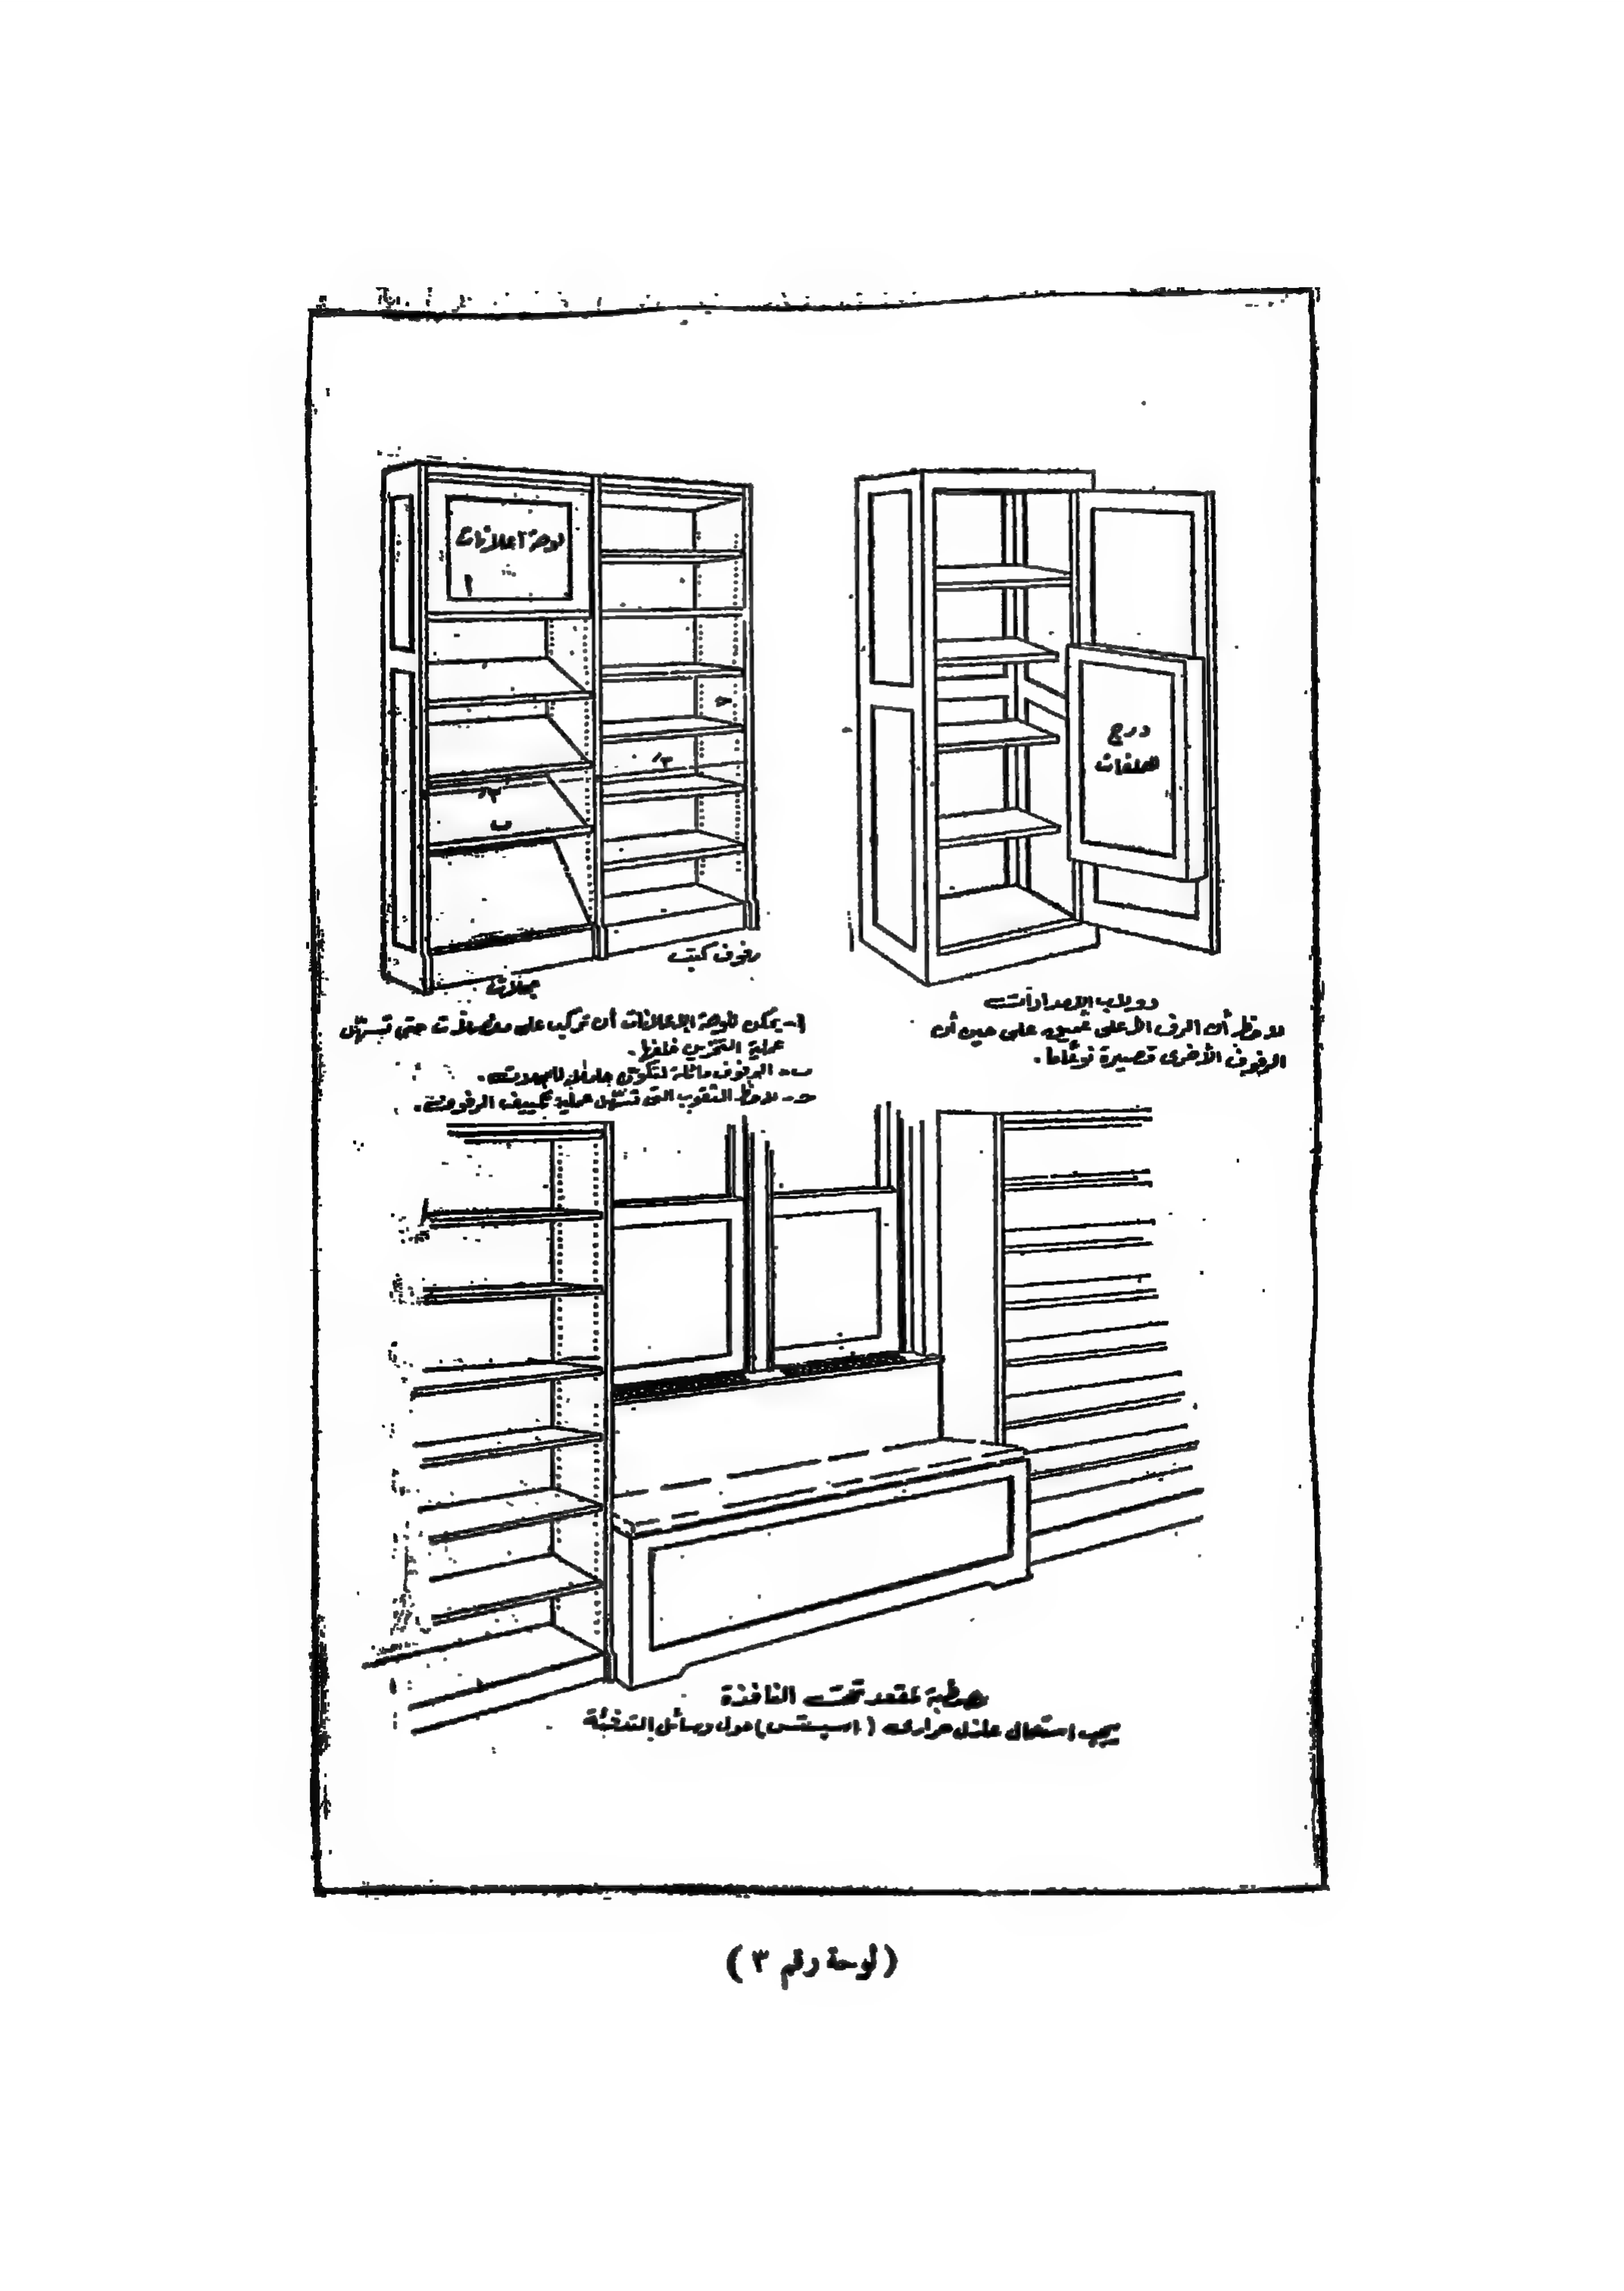 لوحة اعلانات
أ
ب
ح
درج
للملفات
رفوف كتب
مجلات
دولاب الإمدادات
لاحظ أن الرف الأعلى عميق على حين أن
الرفوف الأخرى قصيرة نوعًا ما.
أ- يمكن للوحة الإعلانات أن تركب على مفصلات حتى تسهّل
عملية التخزين خلفها.
ب- الرفوف مائلة لتكون حاملات للمجلات.
حـ- لاحظ الثقوب التي تسهّل عملية تكييف الرفوف.
مقعد تحت النافذة
يجب استعمال عازل حراري (اسبستس) حول وسائل التدفئة
(لوحة رقم ٣)